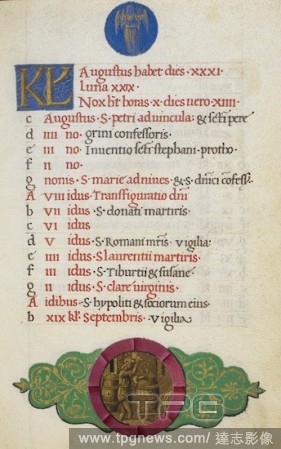 KL Augustus habet dies · XXXI ·
luna XXIX ·
Nox hēt horas · X · dies uero · XIIII ·
c Augustus · S · petri aduincula: & scti pere
d IIII no · grini confessoris ·
e III no · Inuentio scti stephani · protho
f II no ·
g nonis · S · marie adniues · & · S · dn̄ici cōfess.
A VIII idus · Transfiguratio dn̄i
b VII idus · S · donati martiris
c VI idus
d V idus · S · Romani mr̄is · Vigilia:
e IIII idus · S laurentii martiris ·
f III idus · S · Tiburtii & susane
g II idus · S · clare uirginis ·
A idibus · S · hypoliti & sociorum eius
b XIX kł Septembris · Vigilia ·
TPG
www.tpgnews.com/ 達志影像